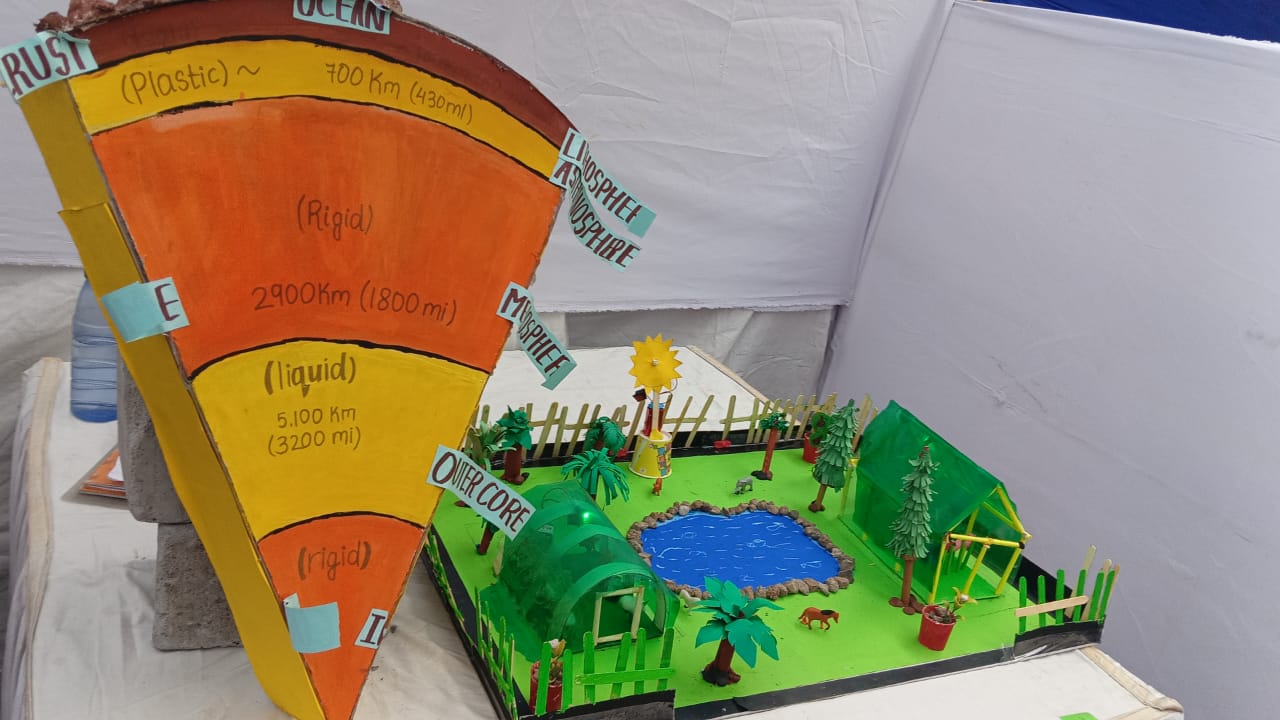 OCEAN
RUST
(Plastic) ~ 700 Km (430ml)
LI
HOSPHEF
ASTHNOSPHIRE
(Rigid)
E
2900Km (1800mi)
(liquid)
5.100 Km
(3200 mi)
OUTER CORE
(rigid)
I